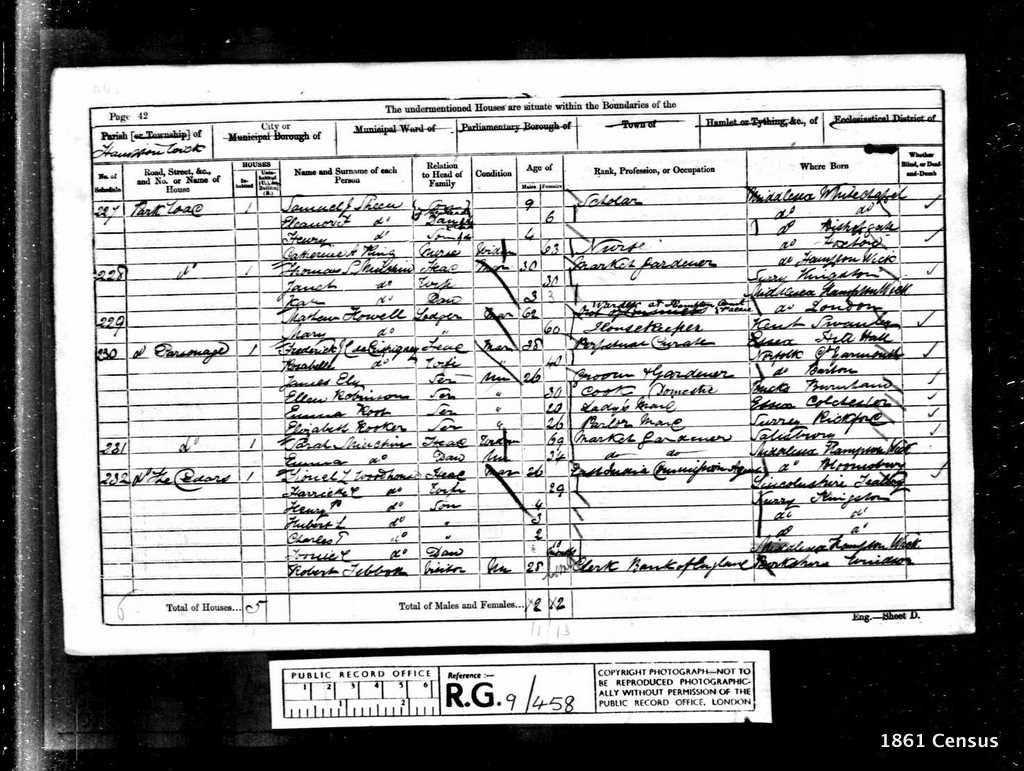 Page 42
The undermentioned Houses are situate within the Boundaries of the
Parish [or Township] of
City or Municipal Borough of
Municipal Ward of
Parliamentary Borough of
Town of
Hamlet or Tything, &c., of
Ecclesiastical District of
Hampton Wick
No. of Schedule
Road, Street, &c., and No. or Name of House
HOUSES
Inhabited
Uninhabited (U.), or Building (B.)
Name and Surname of each Person
Relation to Head of Family
Condition
Age of
Males
Females
Rank, Profession, or Occupation
Where Born
Whether Blind, or Deaf-and-Dumb
227 Park 1 Samuel J Sheen 9 Scholar Middlesex Whitechapel
Eleanor do 6 do do
Henry do Son 4 do Bishopsgate
Catherine A King Nurse Widow 63 Nurse do
228 do 1 Thomas Head Mar 30 Market Gardener do Hampton Wick
Janet do Wife 30 Surry Kingston
Kate do Daw 3 Middlesex Hampton Wick
229 Mathew Howell Lodger Mar 62 do London
Mary do " 60 Housekeeper Kent
230 do Parsonage 1 Frederick J Head Mar 38 Perpetual Curate Essex Hill Hall
Rosabell do Wife " 40 Norfolk Gt Yarmouth
James Ely Ser Un 26 Groom & Gardener do
Ellen Robinson Ser " 30 Cook Domestic Bucks Burnham
Emma Root Ser " 29 Lady's Maid Essex Colchester
Elizabeth Rooker Ser " 26 Parlor Maid Surrey
231 do 1 Sarah Minchin Head Widow 69 Market Gardener Salisbury
Emma do Daw Un 34 do do Middlesex Hampton Wick
232 do The Cedars 1 Lionel Woodhouse Head Mar 26 East India Commission Agent do Bloomsbury
Harriet do Wife 29 Lincolnshire
Henry do Son 4 Surry Kingston
Hubert L do " 3 do do
Charles T do " 2 do do
do Daw 10 months Middlesex Hampton Wick
Robert Tebbott Visitor Un 28 Clerk Bank of England Berkshire Windsor
Total of Houses... 5
Total of Males and Females... 12 12
11 13
Eng.—Sheet D.
PUBLIC RECORD OFFICE
1 2 3 4 5 6
1 2
Reference :—
R.G. 9/458
COPYRIGHT PHOTOGRAPH—NOT TO
BE REPRODUCED PHOTOGRAPHIC-
ALLY WITHOUT PERMISSION OF THE
PUBLIC RECORD OFFICE, LONDON
1861 Census